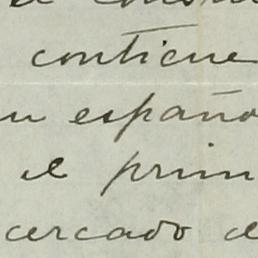 contiene
en español
el prim
cercado de